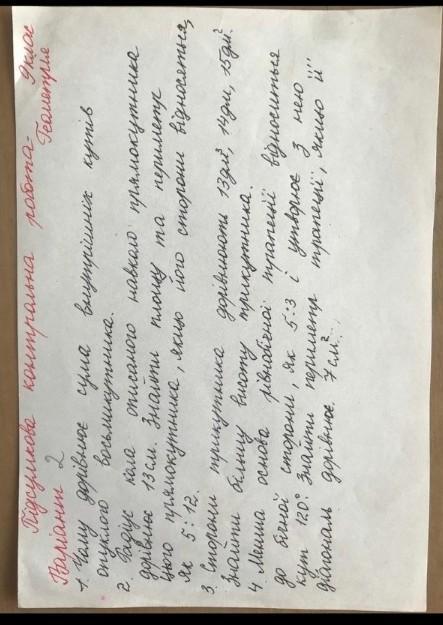 Підсумкова контрольна робота- 9клас
Варіант 2 Геометрія
1. Чому дорівнює сума внутрішніх кутів
опуклого восьмикутника.
2. Радіус кола описаного навколо прямокутника
дорівнює 13 см. Знайти площу та периметр
цього прямокутника, якщо його сторони відносяться,
як 5:12.
3. Сторони трикутника дорівнюють 13дм, 14дм, 15дм.
Знайти більшу висоту трикутника.
4. Менша основа рівнобічної трапеції відноситься
до бічної сторони, як 5:3 і утворює з нею
кут 120°. Знайти периметр трапеції, якщо її
діагональ дорівнює 7 см.